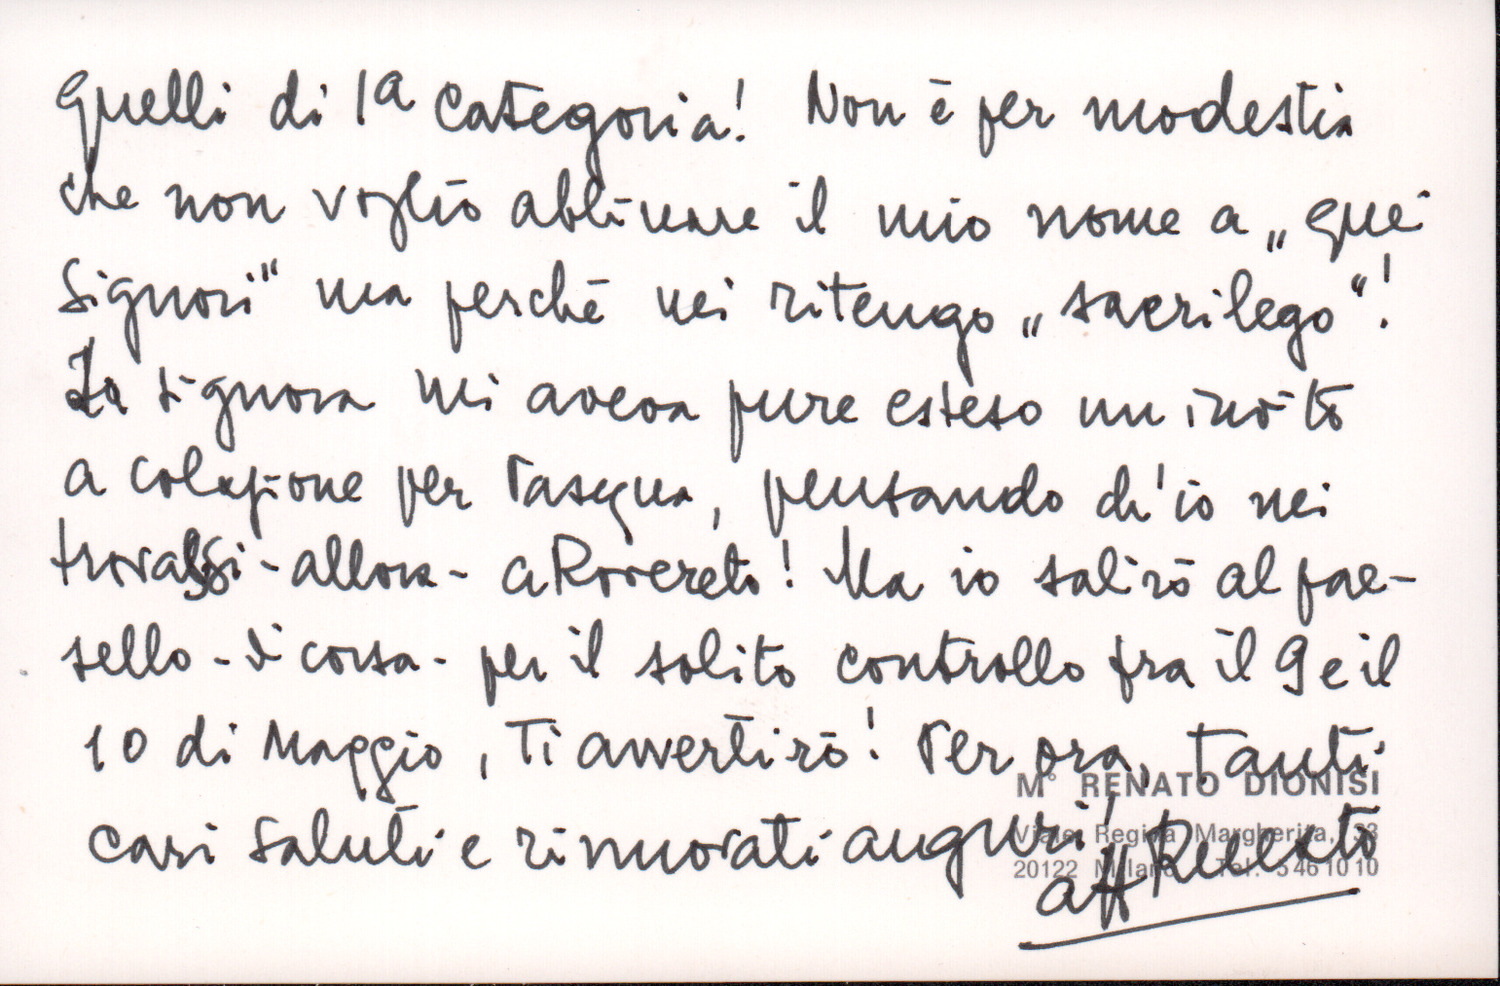 Quelli di 1ª Categoria! Non è per modestia
che non voglio abbinare il mio nome a „quei
Signori" ma perché mi ritengo „sacrilego"!
La signora mi aveva pure esteso un invito
a colazione per Pasqua, pensando ch'io mi
trovassi - allora - a Rovereto! Ma io salirò al pae-
sello - di corsa - per il solito controllo fra il 9 e il
10 di Maggio, Ti avvertirò! Per ora, tanti
cari saluti e rinnovati auguri!
aff Renato
M° RENATO DIONISI
Viale Regina Margherita, 33
20122 Milano Tel. 5461010